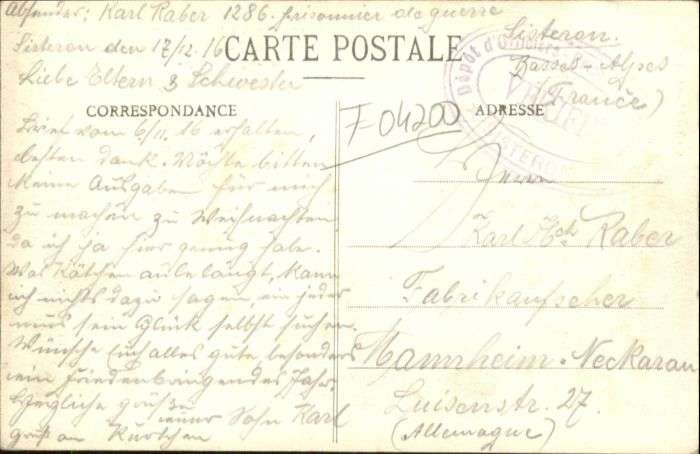 Absender: Karl Raber 1286. prisonnier de guerre
Sisteron.
Basses-Alpes
(France)
Sisteron den 17/12.16
CARTE POSTALE
Liebe Eltern & Schwester
Dépôt d'Officiers
CORRESPONDANCE
F-04200
ADRESSE
Brief vom 6/11.16 erhalten,
besten dank. Möchte bitten
keine Ausgaben für mich
zu machen zu Weihnachten
da ich ja hier genug habe.
Was Kätchen anbelangt, kann
ich nichts dazu sagen, ein jeder
mus sein Glück selbst suchen.
Wünsche Euch alles gute besonders
ein Friedenbringendes Jahr.
Herzliche grüße
euer Sohn Karl
gruß an Kurtchen
Herrn
Karl Raber
Fabrikaufseher
Mannheim-Neckarau
Luisenstr. 27.
(Allemagne)